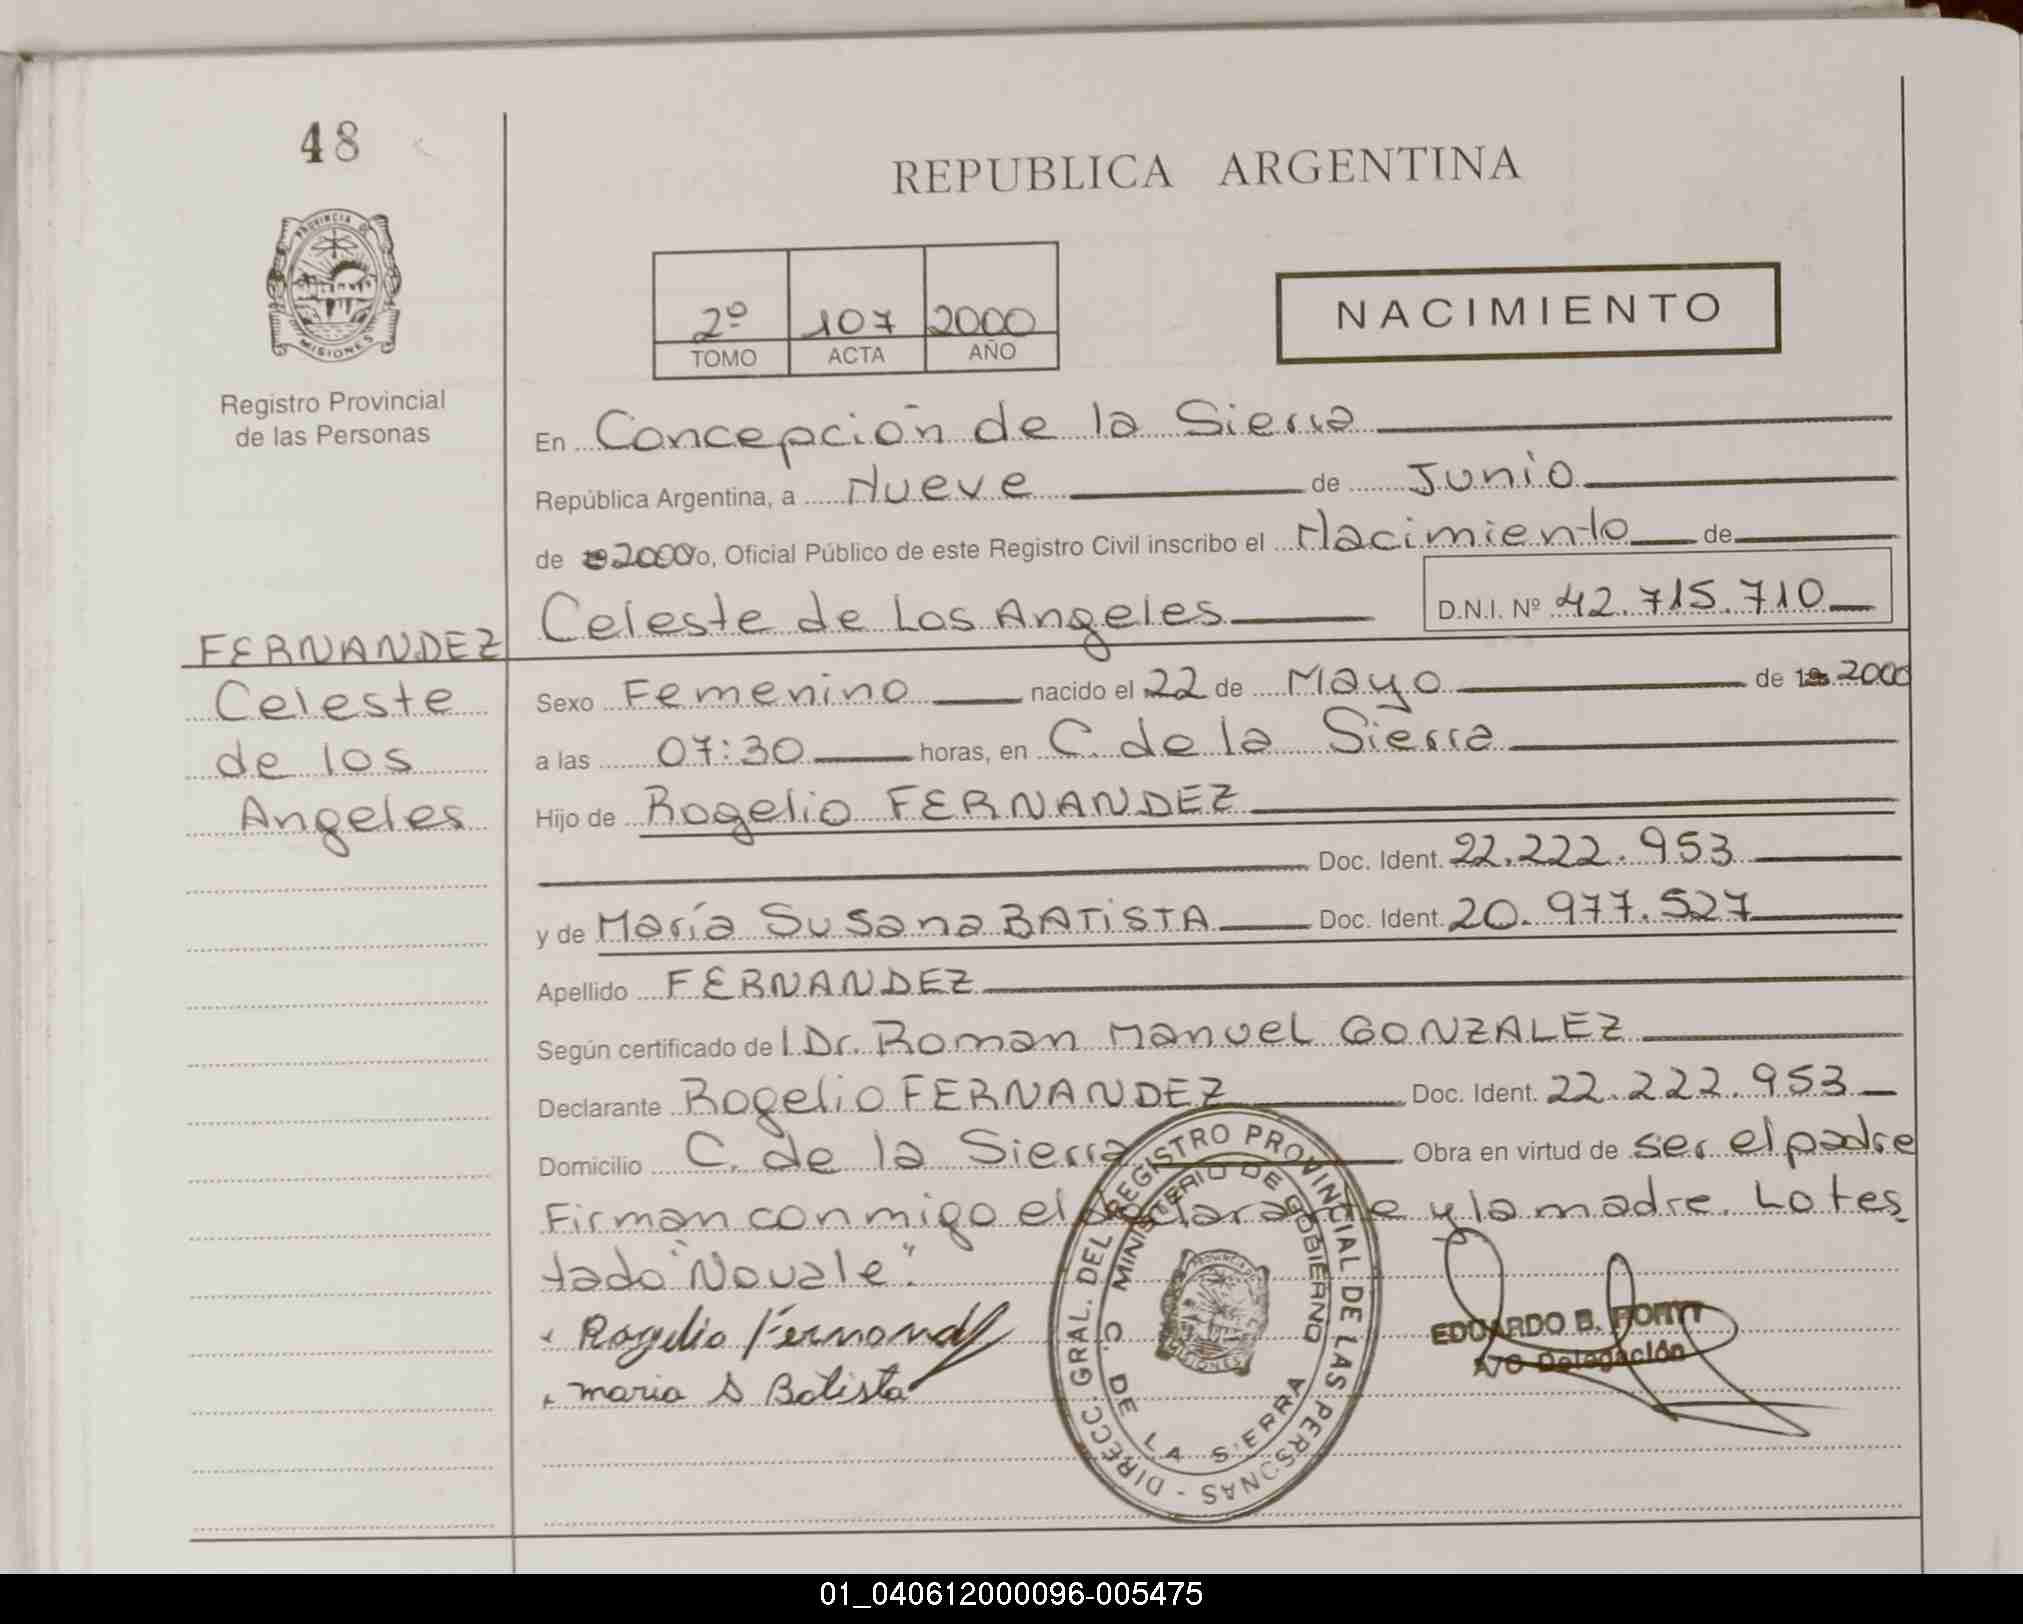 48
PROVINCIA DE
MISIONES
Registro Provincial
de las Personas
FERNANDEZ
Celeste
de los
Angeles
REPUBLICA ARGENTINA
2º 107 2000
TOMO ACTA AÑO
NACIMIENTO
En Concepción de la Sierra
República Argentina, a Nueve de Junio
de 2000 yo, Oficial Público de este Registro Civil inscribo el Nacimiento de
Celeste de Los Angeles D.N.I. Nº 42.715.710
Sexo Femenino nacido el 22 de Mayo de 2000
a las 07:30 horas, en C. de la Sierra
Hijo de Rogelio FERNANDEZ
Doc. Ident. 22.222.953
y de María Susana BATISTA Doc. Ident. 20.977.527
Apellido FERNANDEZ
Según certificado del Dr. Roman Manuel GONZALEZ
Declarante Rogelio FERNANDEZ Doc. Ident. 22.222.953
Domicilio C. de la Sierra Obra en virtud de ser el padre
Firman conmigo el declarante y la madre. Lo tes
tado "No vale".
Rogelio Fernand
maria S Batista
DIRECC. GRAL. DEL REGISTRO PROVINCIAL DE LAS PERSONAS -
MINISTERIO DE GOBIERNO
C. DE LA SIERRA
PROVINCIA DE
MISIONES
EDUARDO B.
A/C Delegación
01_040612000096-005475